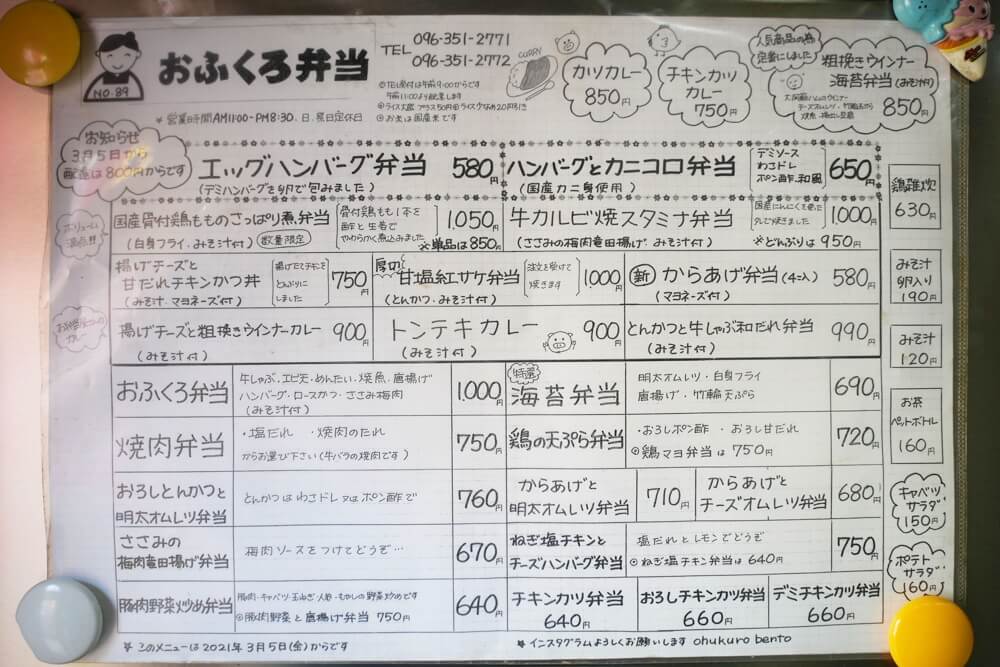 NO.89
おふくろ弁当
TEL 096-351-2771
096-351-2772
※TEL受付は午前9:00からです
午前11:00より
◎ライス大盛 プラス50円 ◎ライス少なめ20円引き
◎お米は国産米です
＊営業時間AM11:00-PM8:30. 日、祭日定休日
CURRY
カツカレー
850円
チキンカツ
カレー
750円
人気商品の為
定番にしました
粗挽きウインナー
海苔弁当(みそ汁付)
850円
お知らせ
3月5日から
配達は800円からです
エッグハンバーグ弁当 580円
(デミハンバーグを卵で包みました)
ハンバーグとカニコロ弁当
(国産カニ身使用)
デミソース
わさドレ
ポン酢.和風
650円
ボリューム
満点!!
国産骨付鶏もものさっぱり煮弁当
(白身フライ.みそ汁付) 数量限定
骨付鶏もも1本を
酢と生姜で
やわらかく煮込みました
1,050円
※単品は850円
牛カルビ焼スタミナ弁当
(ささみの梅肉竜田揚げ.みそ汁付)
国産にんにくを使ったタレで焼きました
1,000円
※どんぶりは950円
揚げチーズと
甘だれチキンかつ丼
(みそ汁.マヨネーズ付)
揚げたてチキンを
どんぶりに
しました
750円
厚切 甘塩紅サケ弁当
(とんかつ・みそ汁付)
注文を受けて
焼きます
1,000円
新 からあげ弁当(4コ入)
(マヨネーズ付)
580円
揚げチーズと粗挽きウインナーカレー
(みそ汁付)
900円
トンテキカレー
(みそ汁付)
900円
とんかつと牛しゃぶ和だれ弁当
(みそ汁付)
990円
おふくろ弁当
牛しゃぶ.エビ天・めんたい.焼魚.唐揚げ
ハンバーグ・ロースかつ・ささみ梅肉
(みそ汁付)
1,000円
特選
海苔弁当
明太オムレツ・白身フライ
唐揚げ・竹輪天ぷら
690円
焼肉弁当
・塩だれ ・焼肉のたれ
からお選び下さい(牛バラの焼肉です)
750円
鶏の天ぷら弁当
・おろしポン酢 ・おろし甘だれ
◎鶏マヨ弁当は750円
720円
おろしとんかつと
明太オムレツ弁当
とんかつはわさドレ又はポン酢で
760円
からあげと
明太オムレツ弁当
710円
からあげと
チーズオムレツ弁当
680円
ささみの
梅肉竜田揚げ弁当
梅肉ソースをつけてどうぞ…
670円
ねぎ塩チキンと
チーズハンバーグ弁当
塩だれとレモンでどうぞ
◎ねぎ塩チキン弁当は640円
750円
豚肉野菜炒め弁当
豚肉・キャベツ・玉ねぎ・人参・もやしの野菜炒めです
◎豚肉野菜と唐揚げ弁当 750円
640円
チキンカツ弁当
640円
おろしチキンカツ弁当
660円
デミチキンカツ弁当
660円
鶏雑炊
630円
みそ汁
卵入り
190円
みそ汁
120円
お茶
ペットボトル
160円
キャベツ
サラダ
150円
ポテト
サラダ
60円
＊このメニューは2021年3月5日(金)からです
＊インスタグラムよろしくお願いします ohukuro bento